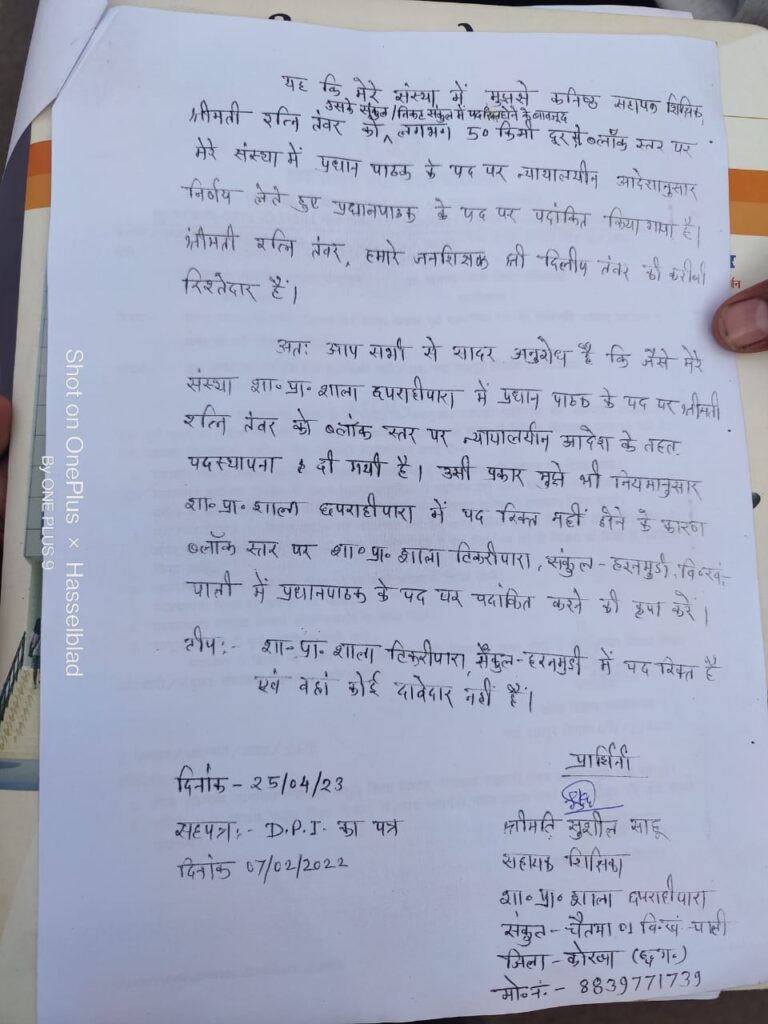 यह कि मेरे संस्था में मुझसे कनिष्ठ सहायक शिक्षिक,
उसके संकुल/निकट संकुल में पद रिक्त होने के बावजूद
श्रीमती रत्नि तंवर को ^ लगभग 50 किमी दूर से ब्लॉक स्तर पर
मेरे संस्था में प्रधान पाठक के पद पर न्यायालयीन आदेशानुसार
निर्णय लेते हुए प्रधानपाठक के पद पर पदांकित किया गया है।
श्रीमती रत्नि तंवर, हमारे जनशिक्षक श्री दिलीप तंवर की करीबी
रिश्तेदार हैं।
अतः आप सभी से सादर अनुरोध है कि जैसे मेरे
संस्था शा॰ प्रा॰ शाला छपराहीपारा में प्रधान पाठक के पद पर श्रीमती
रत्नि तंवर को ब्लॉक स्तर पर न्यायालयीन आदेश के तहत
पदस्थापना दी गयी है। उसी प्रकार मुझे भी नियमानुसार
शा॰ प्रा॰ शाला छपराहीपारा में पद रिक्त नहीं होने के कारण
ब्लॉक स्तर पर शा॰ प्रा॰ शाला टिकरीपारा, संकुल - हरनमुडी, वि॰खं॰
पाली में प्रधानपाठक के पद पर पदांकित करने की कृपा करें।
टीप:- शा॰ प्रा॰ शाला टिकरीपारा, संकुल-हरनमुडी में पद रिक्त है
एवं वहां कोई दावेदार नहीं हैं।
प्रार्थिनी
दिनांक - 25/04/23
सहपत्र:- D.P.I. का पत्र
दिनांक 07/02/2022
श्रीमति सुशील साहू
सहायक शिक्षिका
शा॰ प्रा॰ शाला छपराहीपारा
संकुल - चैतमा 01 वि॰खं - पाली
जिला - कोरबा (छ॰ग॰)
मो॰नं॰ - 8839771739
Shot on OnePlus × Hasselblad
By ONE PLUS 9